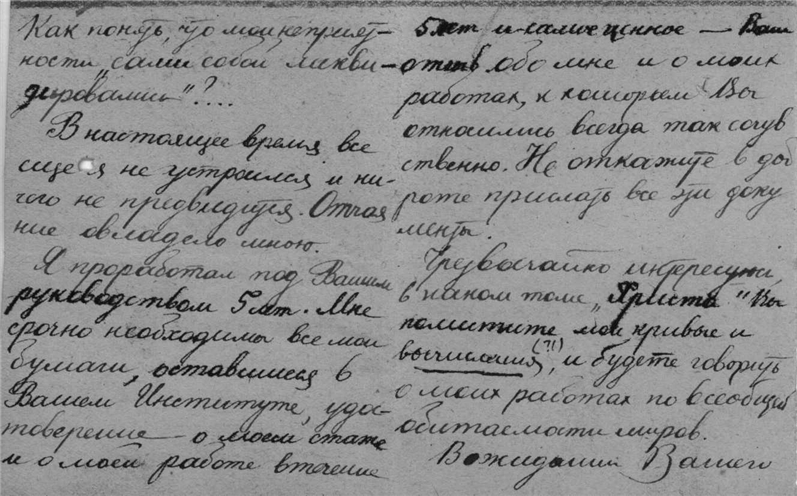 Как понять, что мои неприят-
ности „сами собой ликви-
дировались“?...
В настоящее время все
еще я не устроился и ни-
чего не предвидится. Отчая
ние овладело мною.
Я проработал под Вашим
руководством 5 лет. Мне
срочно необходимы все мои
бумаги, оставшиеся в
Вашем Институте, удос-
товерение о моем стаже
и о моей работе втечение
5 лет и самое ценное — Ваш
отзыв обо мне и о моих
работах, к которым Вы
относились всегда так сочув
ственно. Не откажите в доб
роте прислать все эти доку
менты.
Чрезвычайно интересуюсь,
в каком томе „Христа“ Вы
поместите мои кривые и
вычисления (?!), и будете говорить
о моих работах по всеобщей
обитаемости миров.
В ожидании Вашего